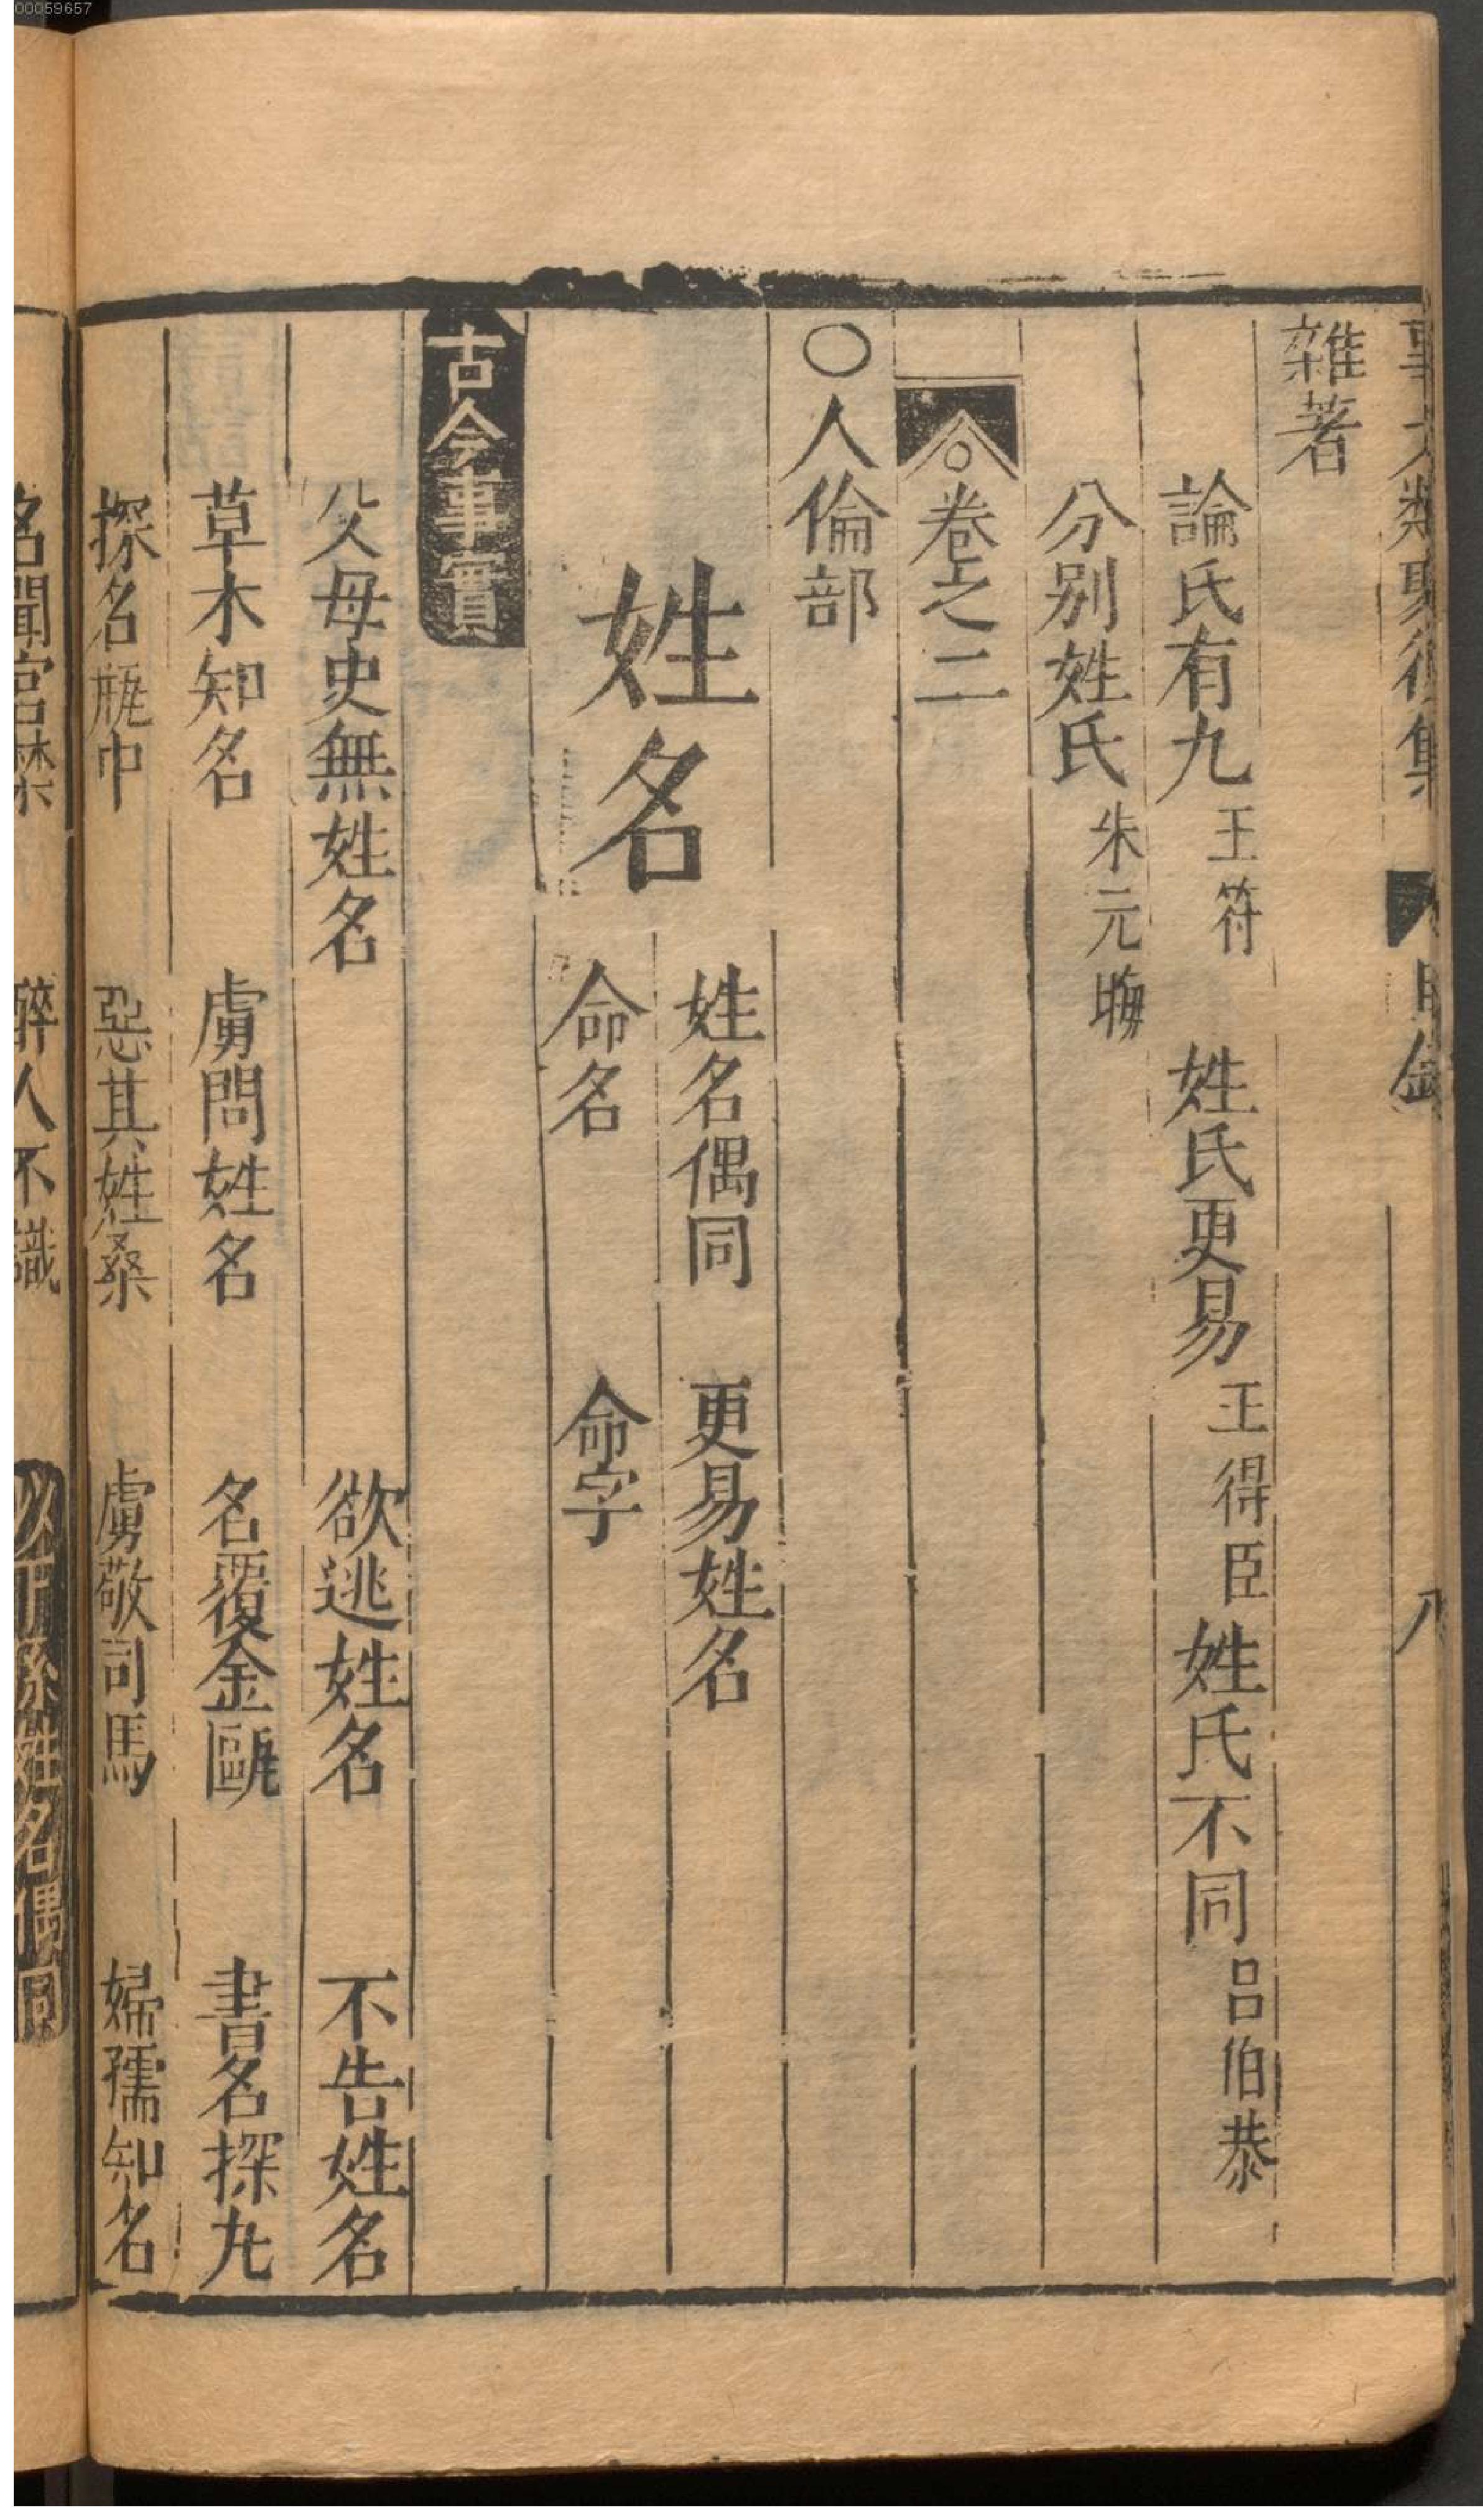 00059657
事文類聚後集 目錄 八
雜著
論氏有九 王符 姓氏更易 王得臣 姓氏不同 呂伯恭
分别姓氏 朱元晦
卷之二
○人倫部
姓名 姓名偶同 更易姓名
命名 命字
古今事實
父母史無姓名 欲逃姓名 不告姓名
草木知名 虜問姓名 名覆金甌 書名探丸
探名瓶中 惡其姓桑 虜敬司馬 婦孺知名
名聞宮禁 醉人不識 以下係姓名偶同